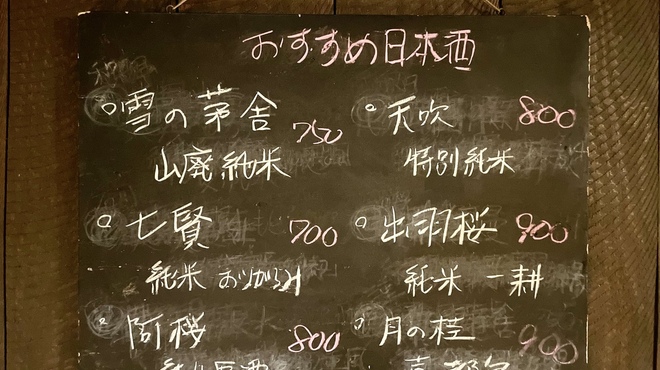 おすすめ日本酒
○雪の茅舎 750
山廃純米
○七賢 700
純米 おりがらみ
○阿櫻 800
○天吹 800
特別純米
○出羽桜 900
純米 一耕
○月の桂 900